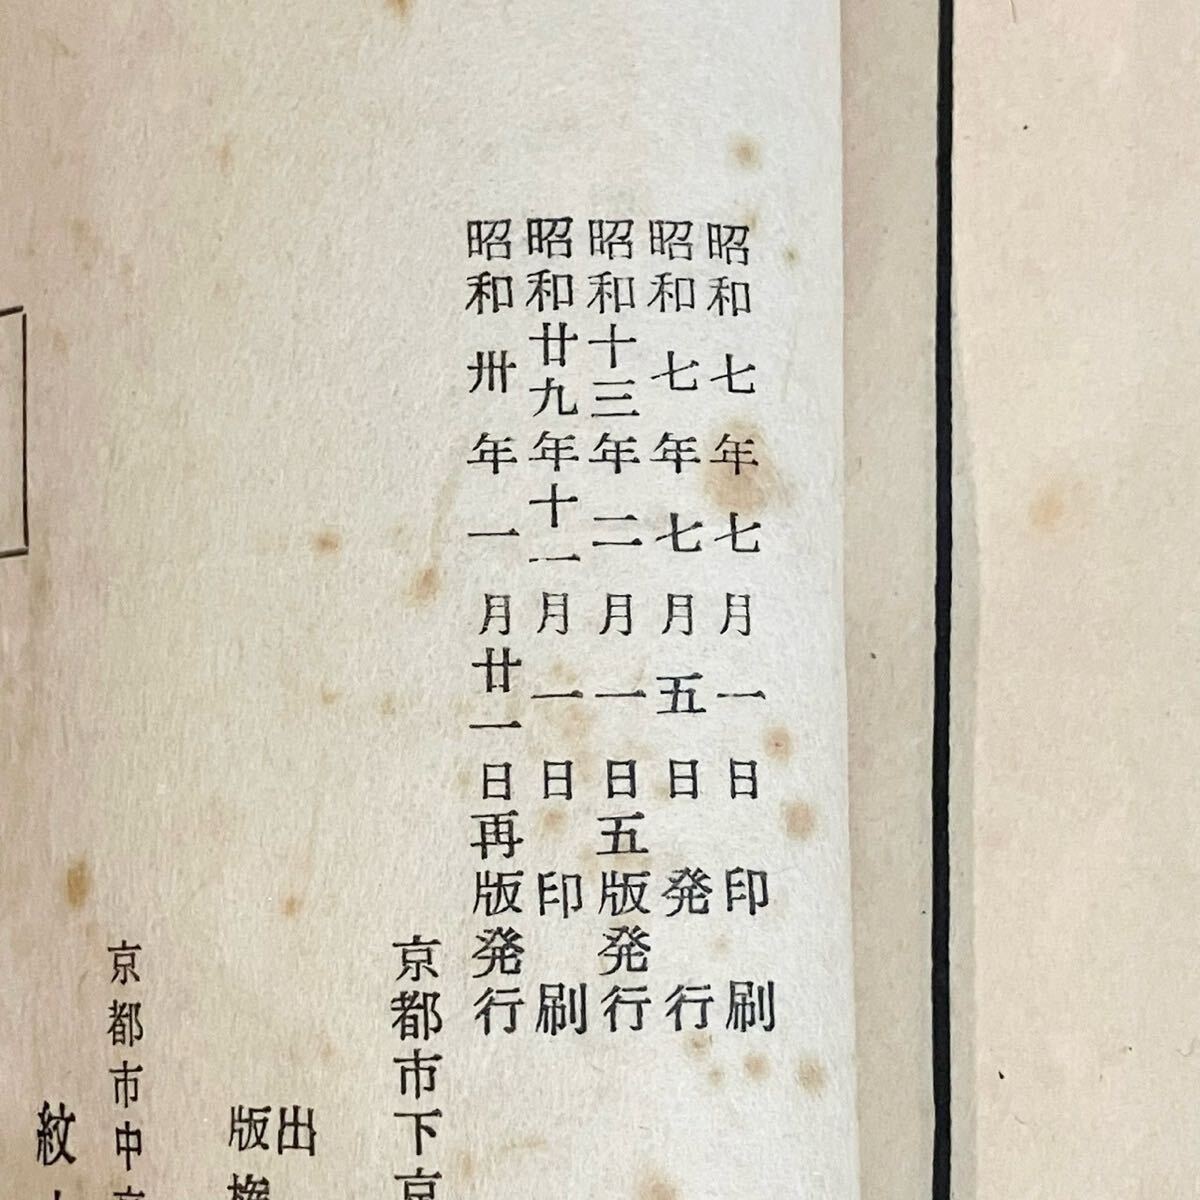 昭和七年七月一日印刷
昭和七年七月五日発行
昭和十三年二月一日五版発行
昭和廿九年十一月一日印刷
昭和卅年一月廿一日再版発行
京都市下京
出
版権
京都市中京
紋